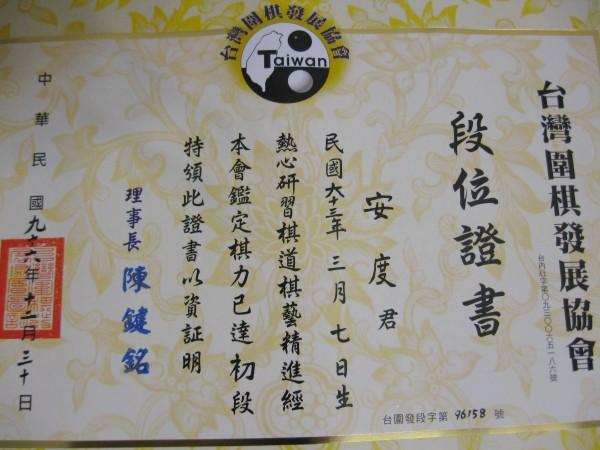 台灣圍棋發展協會
Taiwan
台灣圍棋發展協會
台內社字第〇九三〇〇六五一八六號
段位證書
安度君
民國六十三年三月七日生
熱心研習棋道棋藝精進經
本會鑑定棋力已達初段
特頒此證書以資証明
理事長 陳鍵銘
中華民國九十六年十二月三十日
台圍發段字第 96158 號